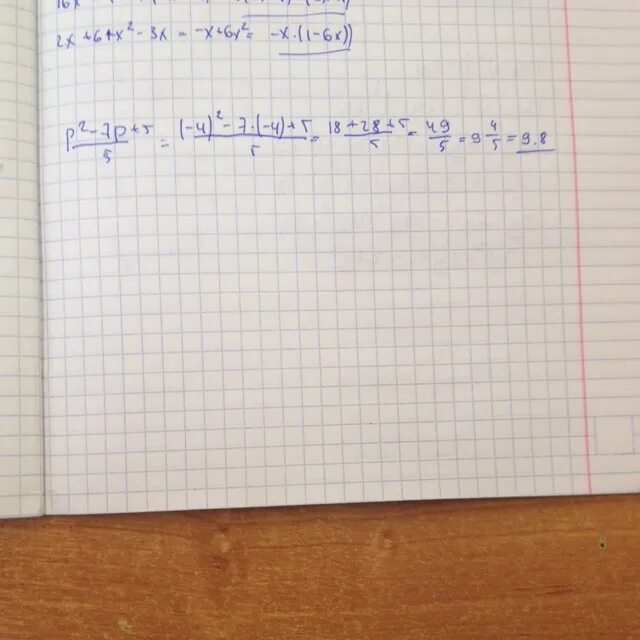 2x + 6 + x² - 3x = -x + 6x² = -x · (1 - 6x)
p² - 7p + 5 / 5 = (-4)² - 7 · (-4) + 5 / 5 = 18 + 28 + 5 / 5 = 49 / 5 = 9 4/5 = 9.8